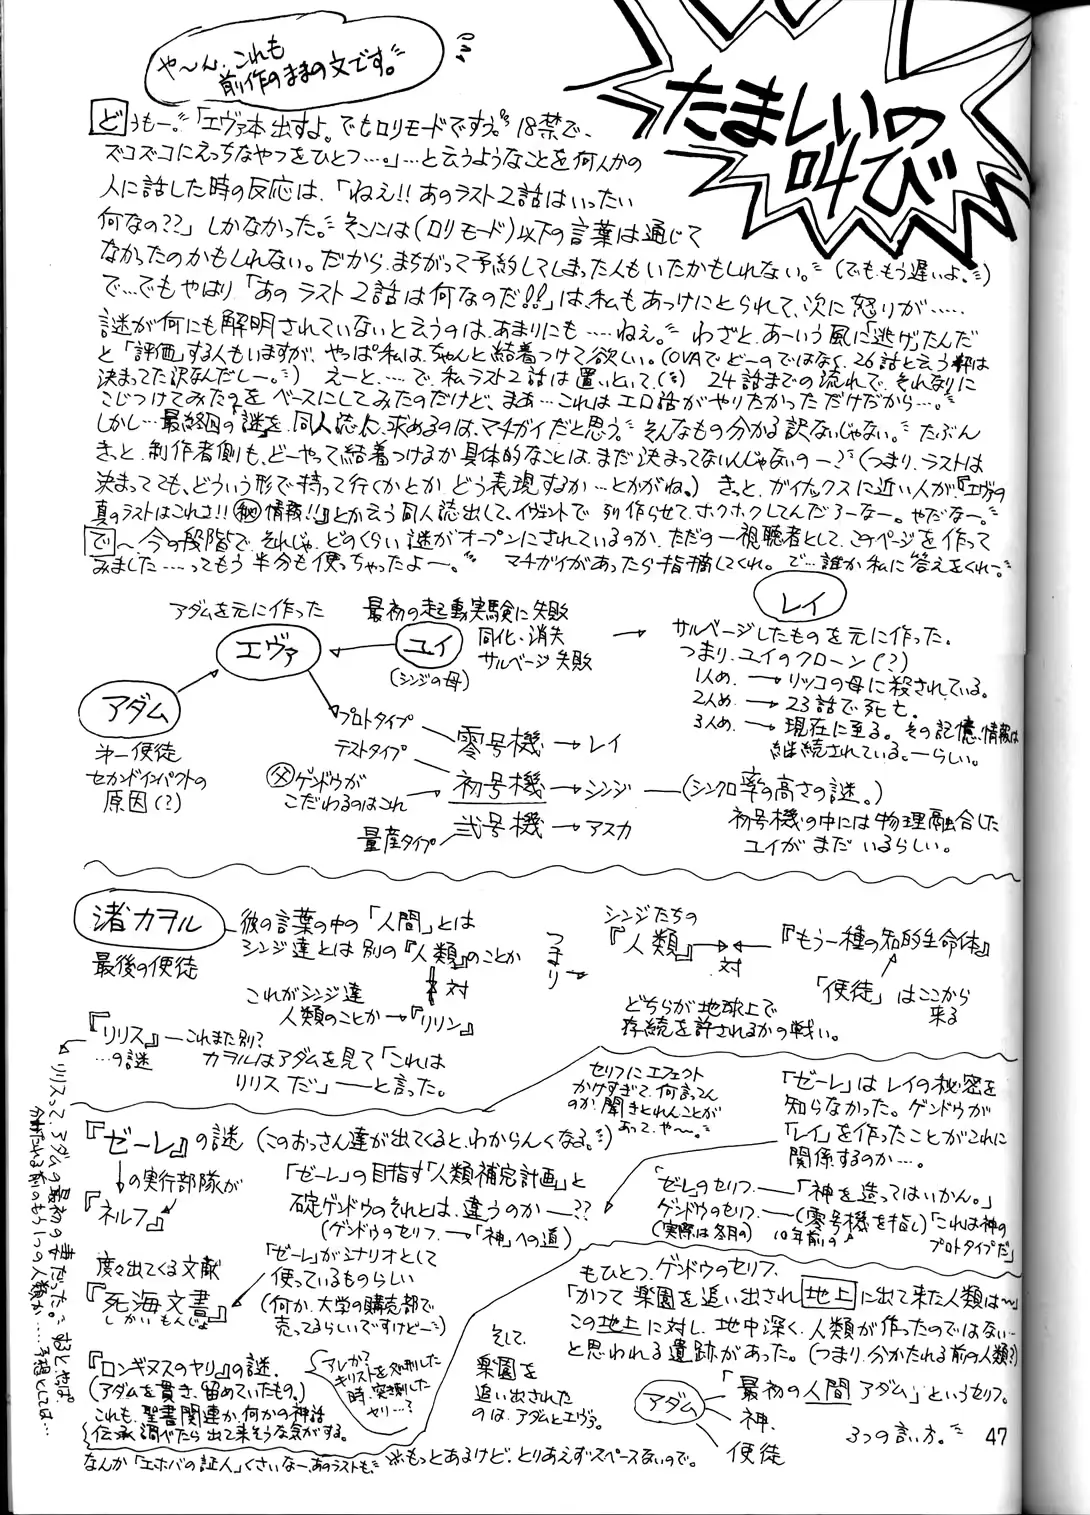 や〜ん、これも
前作のままの文です。
たましいの
叫び
どうもー。「エヴァ本出すよ。でもロリモードですぅ。18禁で、
ズコズコにえっちなやつをひとつ…。」…と云うようなことを何人かの
人に話した時の反応は、「ねえ!!あのラスト2話はいったい
何なの??」しかなかった。そこには(ロリモード)以下の言葉は通じて
なかったのかもしれない。だから、まちがって予約してしまった人もいたかもしれない。(でも、もう遅いよ。)
で…でもやはり「あのラスト2話は何なのだ!!」は、私もあっけにとられて、次に怒りが……
謎が何にも解明されていないと云うのは、あまりにも……ねぇ。わざと、あーいう風に「逃げ」たんだ
と「評価」する人もいますが、やっぱ私は、ちゃんと結着つけて欲しい。(OVAでどーのではなく、26話と云う枠は
決まってた訳なんだしー。) えーと、…で、私ラスト2話は置いといて、 24話までの流れで、それなりに
こじつけてみたのをベースにしてみたのだけど、まぁ…これはエロ話がやりたかっただけだから…。
しかし…最終回の「謎」を、同人誌に求めるのは、マチガイだと思う。そんなもの分かる訳ないじゃない。たぶん
きっと、制作者側も、どーやって結着つけるか具体的なことは、まだ決まってないんじゃないの−?(つまり、ラストは
決まってても、どういう形で持って行くかとか、どう表現するか…とかがね。)きっと、ガイナックスに近い人が『エヴァの
真のラストはこれさ!!㊙情報!!』とか云う同人誌出して、イヴェントで列作らせて、ホクホクしてんだろーなー。やだなー。
で〜、今の段階で、それじゃ、どのくらい謎がオープンにされているのか、ただの一視聴者として、このページを作って
みました……ってもう半分も使っちゃったよー。 マチガイがあったら指摘してくれ。で…誰か私に答えをくれー。
アダムを元に作った
エヴァ
最初の起動実験に失敗
ユイ
同化、消失
サルベージ失敗
(シンジの母)
レイ
サルベージしたものを元に作った。
つまり、ユイのクローン(?)
1人め、→リツコの母に殺されている。
2人め、→23話で死亡。
3人め、→現在に至る。その記憶、情報は
継続されている。−らしい。
アダム
㐧一使徒
セカンドインパクトの
原因(?)
プロトタイプ
零号機→レイ
テストタイプ
㊛ゲンドウが
こだわるのはこれ
初号機→シンジ―(シンクロ率の高さの謎。)
初号機の中には物理融合した
ユイがまだいるらしい。
量産タイプ
弐号機→アスカ
渚カヲル
最後の使徒
彼の言葉の中の「人間」とは
シンジ達とは別の『人類』のことか
対
これがシンジ達
人類のことか→『リリン』
つまり
シンジたちの
『人類』
対
『もう一種の知的生命体』
「使徒」はここから
来る
どちらが地球上で
存続を許されるかの戦い。
『リリス』―これまた別?
…の謎
カヲルはアダムを見て「これは
リリスだ」――と言った。
リリスって、アダムの最初の妻だった。
『ゼーレ』の謎(このおっさん達が出てくると、わからんくなる。)
セリフにエフェクト
かけすぎて、何言ってん
のか聞きとれんことが
あって、や〜。
の実行部隊が
『ネルフ』
「ゼーレ」の目指す「人類補完計画」と
碇ゲンドウのそれとは、違うのか−??
(ゲンドウのセリフ、―「神」への道)
「ゼーレ」はレイの秘密を
知らなかった。ゲンドウが
「レイ」を作ったことがこれに
関係するのか…。
ゼーレのセリフ、――「神を造ってはいかん。」
ゲンドウのセリフ、―(零号機を指し)「これは神の
プロトタイプだ」
(実際は冬月の)
10年前の
度々出てくる文献
『死海文書』
しかいもんじょ
「ゼーレ」がシナリオとして
使っているものらしい
(何か、大学の購売部で
売ってるらしいですけどー)
『ロンギヌスのヤリ』の謎、
(アダムを貫き、留めていたもの。)
これも、聖書関連か、何かの神話
伝承調べたら出て来そうな気がする。
アレか?
キリストを処刑した
時、突き刺した
ヤリ…?
もひとつ、ゲンドウのセリフ、
「かつて楽園を追い出され地上に出て来た人類は〜」
この地上に対し、地中深く、人類が作ったのではない…
と思われる遺跡があった。(つまり、分かたれる前の人類?)
そして、
楽園を
追い出された
のは、アダムとエヴァ。
アダム
「最初の人間アダム」というセリフ。
神
使徒
3つの言い方。
なんか「エホバの証人」くさいなー、あのラストも、
※もっとあるけど、とりあえずスペースないので。
47